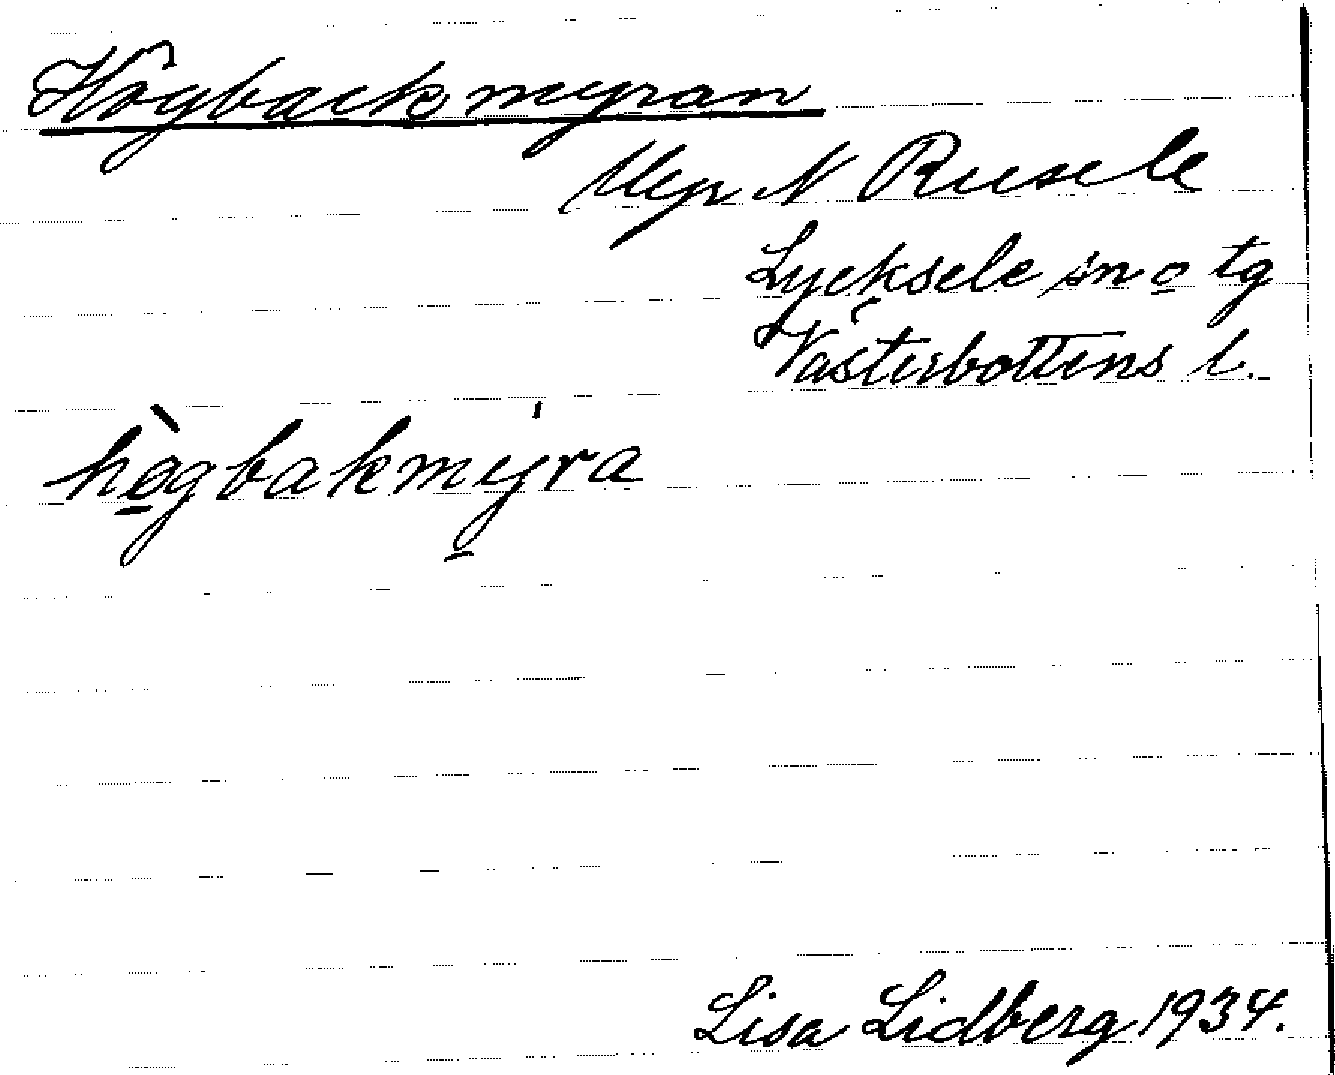 Högbackmyran
Myr N Rusele
Lycksele sn o tg
Västerbottens l.
hø̀gbakmýra
Lisa Lidberg 1934.